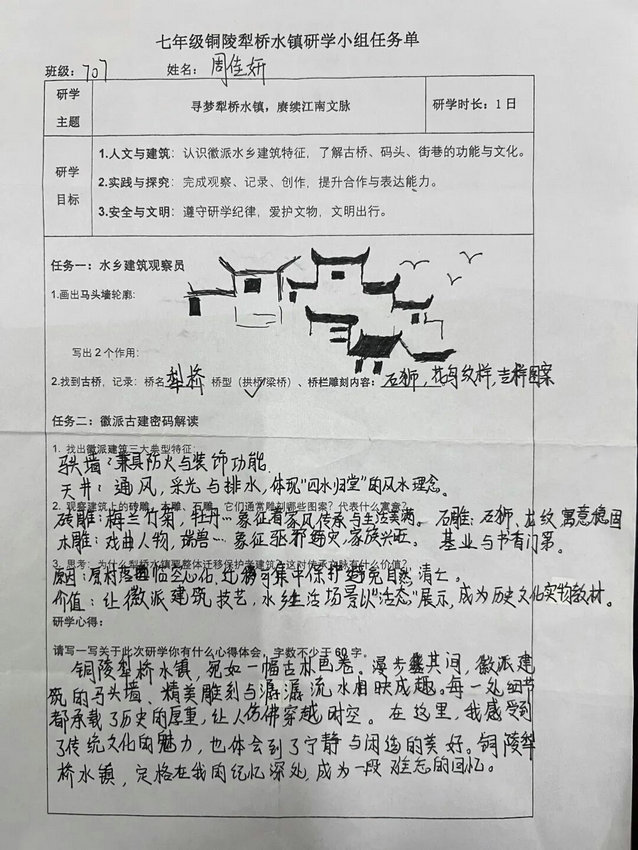 七年级铜陵犁桥水镇研学小组任务单
班级：707 姓名：周佳妍
研学主题
寻梦犁桥水镇，赓续江南文脉
研学时长：1日
研学目标
1.人文与建筑：认识徽派水乡建筑特征，了解古桥、码头、街巷的功能与文化。
2.实践与探究：完成观察、记录、创作，提升合作与表达能力。
3.安全与文明：遵守研学纪律，爱护文物，文明出行。
任务一：水乡建筑观察员
1.画出马头墙轮廓：
写出2个作用：
2.找到古桥，记录：桥名 犁桥 桥型（拱桥✓/梁桥）、桥栏雕刻内容：石狮，花鸟纹样，吉祥图案
任务二：徽派古建密码解读
1. 找出徽派建筑三大典型特征：
马头墙：兼具防火与装饰功能.
天井：通风，采光与排水，体现"四水归堂"的风水理念。
2. 观察建筑上的砖雕、木雕、石雕，它们通常雕刻哪些图案？代表什么寓意？
砖雕：梅兰竹菊，牡丹…象征着家风传承与生活美满。 石雕：石狮、龙纹 寓意稳固
木雕：戏曲人物，瑞兽…象征驱邪避灾，家族兴旺。 基业与书香门第。
3. 思考：为什么犁桥水镇要整体迁移保护老建筑？这对传承文脉有什么价值？
原因：原村落面临空心化，迁移可集中保护避免自然消亡。
价值：让徽派建筑技艺，水乡生活场景以"活态"展示，成为历史文化实物教材。
研学心得：
请写一写关于此次研学你有什么心得体会，字数不少于60字。
铜陵犁桥水镇，宛如一幅古朴画卷。漫步其间，徽派建
筑的马头墙、精美雕刻与潺潺流水相映成趣。每一处细节
都承载了历史的厚重，让人仿佛穿越时空。在这里，我感受到
了传统文化的魅力，也体会到了宁静与闲适的美好。铜陵犁
桥水镇，定格在我的记忆深处，成为一段难忘的回忆。